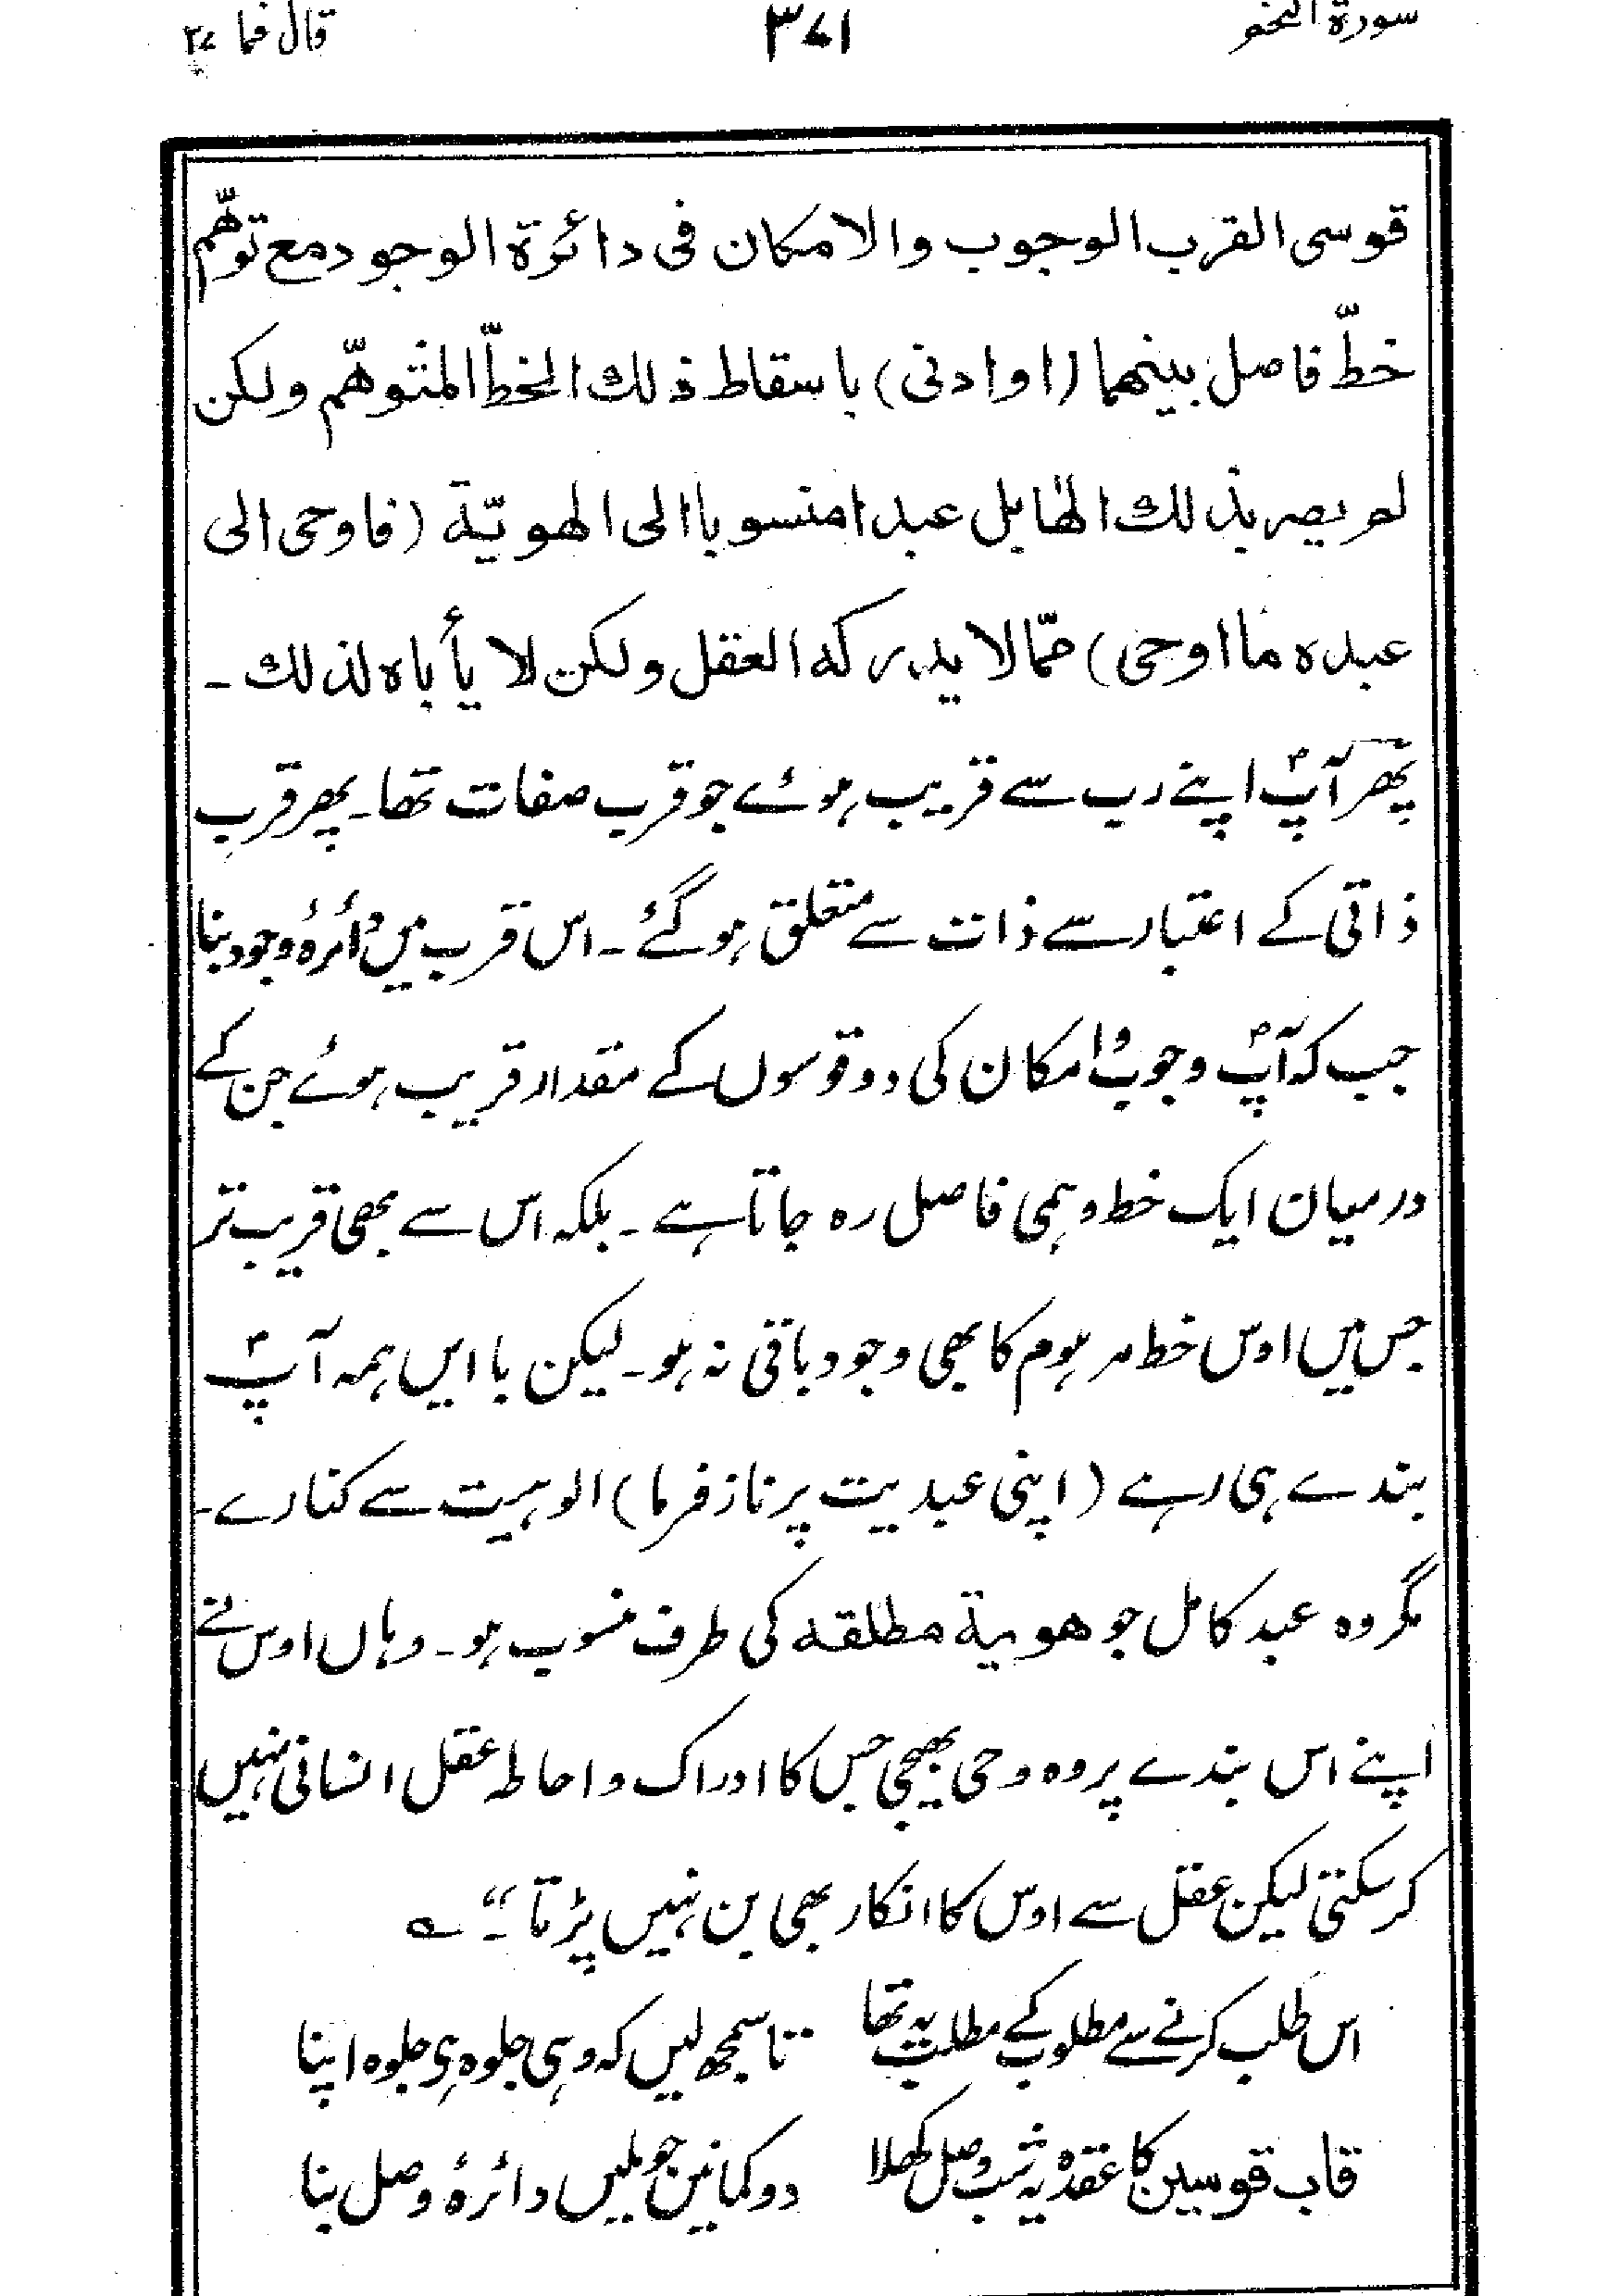 سورۃ النجم ۳۷۱ قال فما ۲۷
قوسی القرب الوجوب والامکان فی دائرۃ الوجود مع توہّم
خطّ فاصل بینھما (او ادنی) باسقاط ذلك الخطّ المتوھّم ولکن
لم یصر بذلك الٰھا بل عبدا منسوبا الی الھویّة (فاوحی الی
عبدہ ما اوحی) ممّا لا یدرکہ العقل ولکن لا یأباہ لذلك ۔
پھر آپؐ اپنے رب سے قریب ہوئے جو قرب صفات تھا۔ پھر قرب
ذاتی کے اعتبار سے ذات سے متعلق ہوگئے ۔ اس قرب میں دائرۂ وجود بنا
جب کہ آپؐ وجوب و امکان کی دو قوسوں کے مقدار قریب ہوئے جن کے
درمیان ایک خط وہمی فاصل رہ جاتا ہے ۔ بلکہ اس سے بھی قریب تر
جس میں اوس خط موہوم کا بھی وجود باقی نہ ہو۔ لیکن با ایں ہمہ آپؐ
بندے ہی رہے (اپنی عبدیت پر ناز فرما) الوہیت سے کنارے۔
مگر وہ عبد کامل جو ھویة مطلقہ کی طرف منسوب ہو۔ وہاں اوس نے
اپنے اس بندے پر وہ وحی بھیجی جس کا ادراک و احاطہ عقل انسانی نہیں
کرسکتی لیکن عقل سے اوس کا انکار بھی بن نہیں پڑتا ۔“ ؎
اس طلب کرنے سے مطلوب کے مطلب یہ تھا تا سمجھ لیں کہ وہی جلوہ ہی جلوہ اپنا
قاب قوسین کا عقدہ یہ شب وصل کھلا دو کمانیں جو ملیں دائرۂ وصل بنا